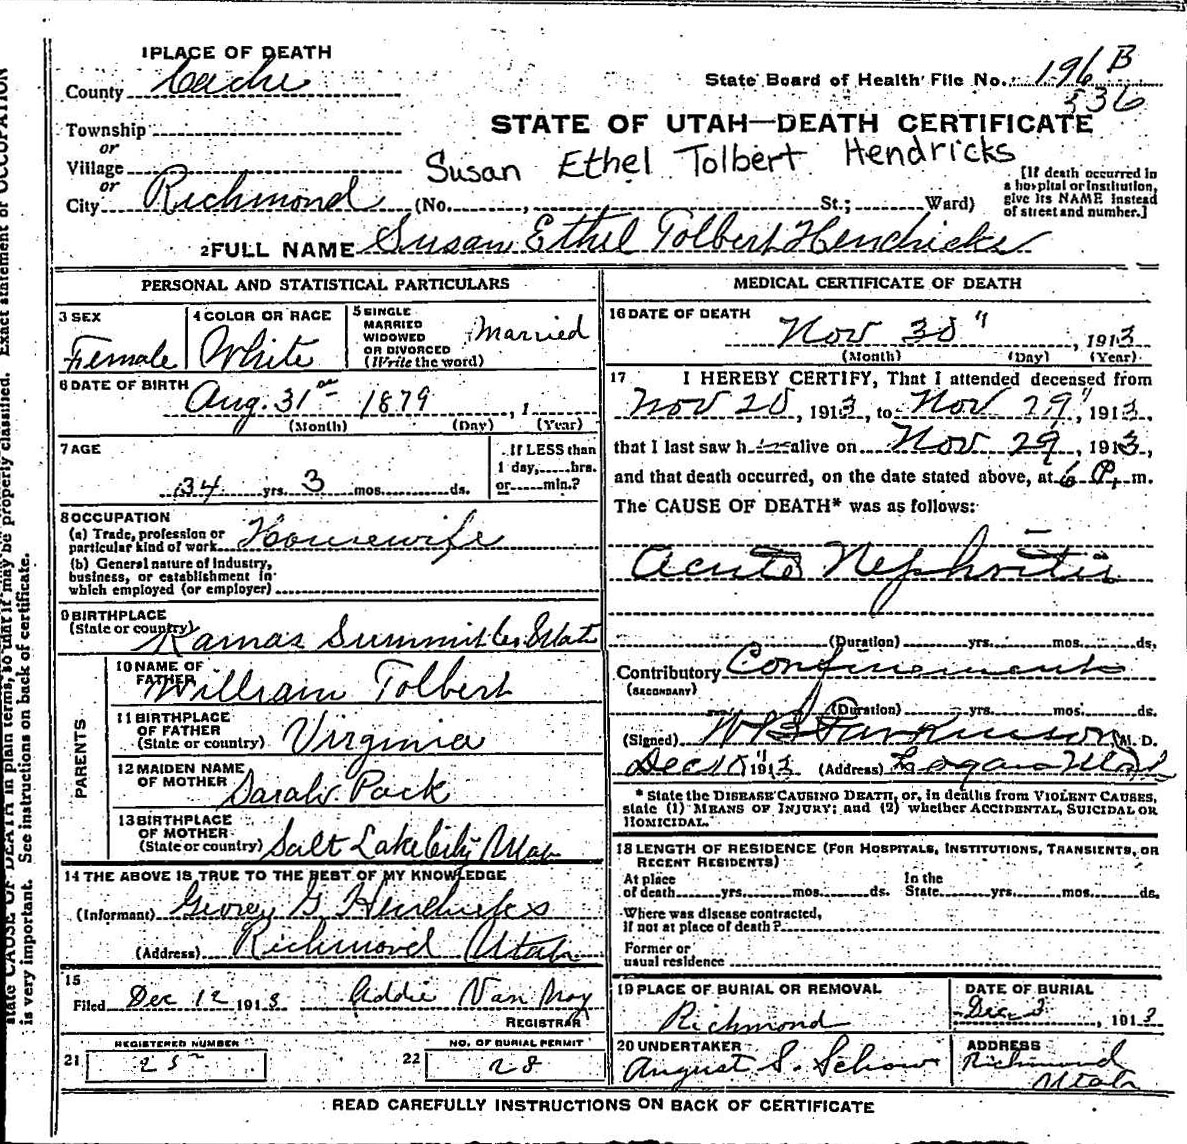 state CAUSE OF DEATH in plain terms, so that it may be properly classified. Exact statement of OCCUPATION
is very important. See instructions on back of certificate.
1 PLACE OF DEATH
County Cache
State Board of Health File No. 196 B
536
Township
or
Village
or
City Richmond (No. , St.; Ward)
STATE OF UTAH—DEATH CERTIFICATE
Susan Ethel Tolbert Hendricks
[If death occurred in
a hospital or institution,
give its NAME instead
of street and number.]
2 FULL NAME Susan Ethel Tolbert Hendricks
PERSONAL AND STATISTICAL PARTICULARS
3 SEX
Female
4 COLOR OR RACE
White
5 SINGLE
MARRIED
WIDOWED
OR DIVORCED
(Write the word)
Married
6 DATE OF BIRTH
Aug. 31 1879 , 1
(Month) (Day) (Year)
7 AGE
34 yrs. 3 mos. ds.
If LESS than
1 day, hrs.
or min.?
8 OCCUPATION
(a) Trade, profession or
particular kind of work Housewife
(b) General nature of industry,
business, or establishment in
which employed (or employer)
9 BIRTHPLACE
(State or country) Kamas Summit Co. Utah
PARENTS
10 NAME OF
FATHER William Tolbert
11 BIRTHPLACE
OF FATHER
(State or country) Virginia
12 MAIDEN NAME
OF MOTHER Sarah Pack
13 BIRTHPLACE
OF MOTHER
(State or country) Salt Lake City Utah
14 THE ABOVE IS TRUE TO THE BEST OF MY KNOWLEDGE
(Informant) George G. Hendricks
(Address) Richmond Utah
15
Filed Dec 12 1913 Addie Van Noy
REGISTRAR
REGISTERED NUMBER
21 25
NO. OF BURIAL PERMIT
22 28
MEDICAL CERTIFICATE OF DEATH
16 DATE OF DEATH
Nov 30" , 1913
(Month) (Day) (Year)
17 I HEREBY CERTIFY, That I attended deceased from
Nov 20, 1913, to Nov 29", 1913,
that I last saw h alive on Nov 29, 1913,
and that death occurred, on the date stated above, at 6 P. m.
The CAUSE OF DEATH* was as follows:
Acute Nephritis
(Duration) yrs. mos. ds.
Contributory Confinement
(SECONDARY)
(Duration) yrs. mos. ds.
(Signed) W B Parkinson M. D.
Dec 1913 (Address) Logan Utah
* State the DISEASE CAUSING DEATH, or, in deaths from VIOLENT CAUSES,
state (1) MEANS OF INJURY; and (2) whether ACCIDENTAL, SUICIDAL OR
HOMICIDAL.
18 LENGTH OF RESIDENCE (FOR HOSPITALS, INSTITUTIONS, TRANSIENTS, OR
RECENT RESIDENTS)
At place
of death yrs. mos. ds.
In the
State yrs. mos. ds.
Where was disease contracted,
if not at place of death?
Former or
usual residence
19 PLACE OF BURIAL OR REMOVAL
Richmond
DATE OF BURIAL
Dec 3, 1913
20 UNDERTAKER
August S. Schow
ADDRESS
Richmond
Utah
READ CAREFULLY INSTRUCTIONS ON BACK OF CERTIFICATE